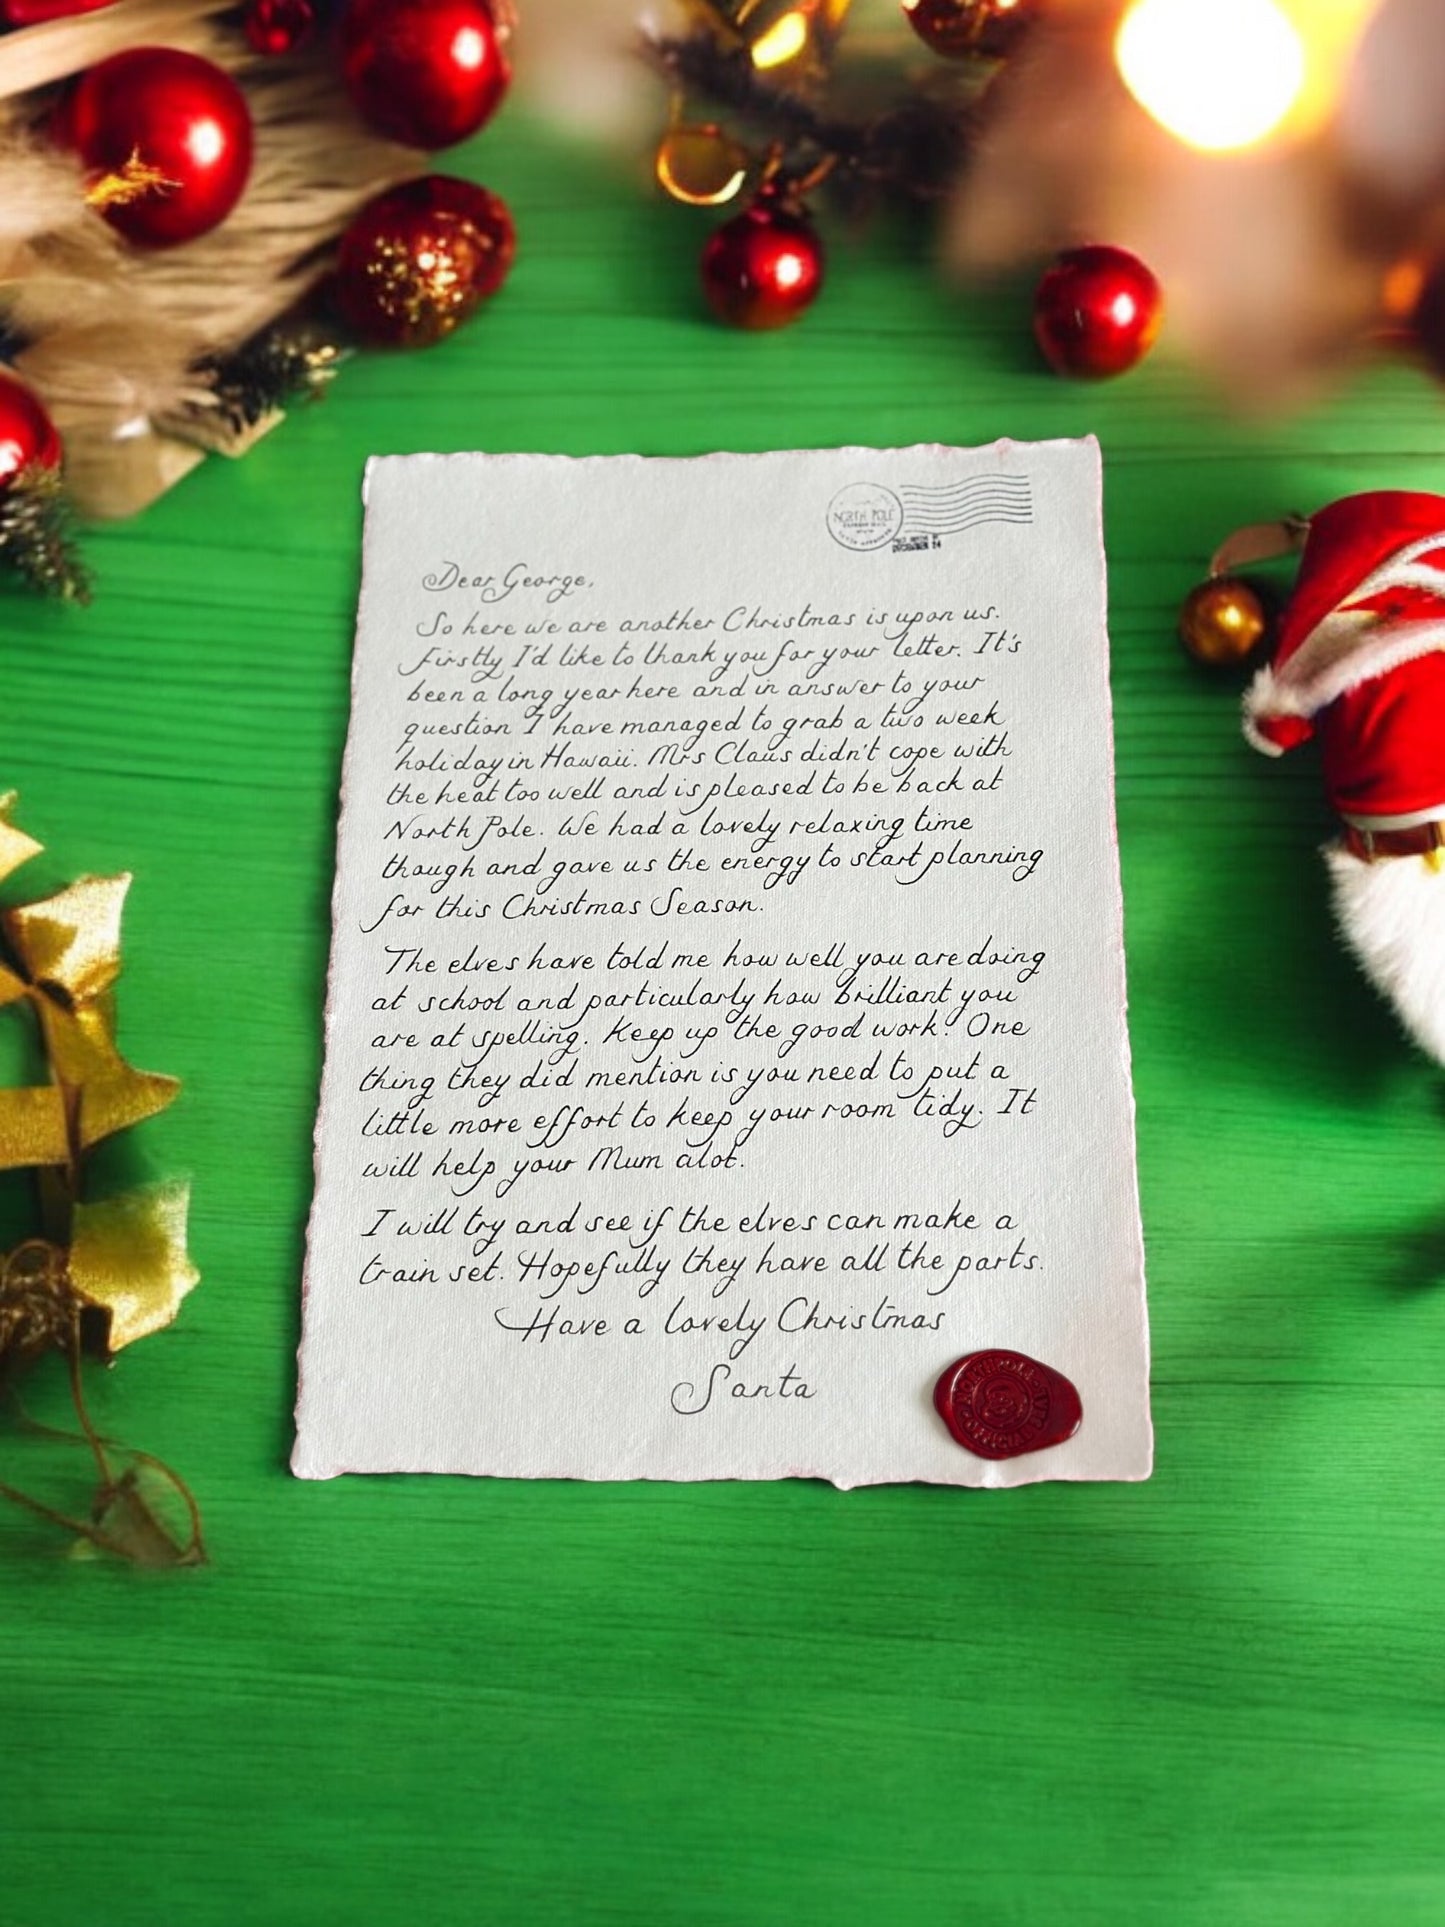 NORTH POLE
DECEMBER 24
Dear George,
So here we are another Christmas is upon us.
Firstly I'd like to thank you for your letter. It's
been a long year here and in answer to your
question I have managed to grab a two week
holiday in Hawaii. Mrs Claus didn't cope with
the heat too well and is pleased to be back at
North Pole. We had a lovely relaxing time
though and gave us the energy to start planning
for this Christmas Season.
The elves have told me how well you are doing
at school and particularly how brilliant you
are at spelling. Keep up the good work. One
thing they did mention is you need to put a
little more effort to keep your room tidy. It
will help your Mum alot.
I will try and see if the elves can make a
train set. Hopefully they have all the parts.
Have a lovely Christmas
Santa
OFFICIAL